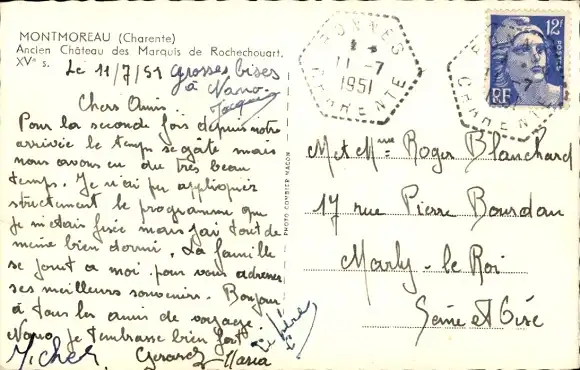 MONTMOREAU (Charente)
Ancien Château des Marquis de Rochechouart.
XVe s.
Le 11/7/51 grosses bises
à Nano.
Jacques
Chers Amis.
Pour la seconde fois depuis notre
arrivée le temps se gâte mais
nous avons eu du très beau
temps. Je n'ai pu appliquer
strictement le programme que
je m'etais fixée mais j'ai tout de
même bien dormi. La famille
se joint a moi pour vous adresser
ses meilleurs souvenirs. Bonjour
à tous les amis de voyage
Nano, je t'embrasse bien fort
Michel Gerard Maria
Le Père
PHOTO COMBIER MACON
11-7
1951
CHARENTE
12F
POSTES
RF
CHARENTE
M et Mme Roger Blanchard
17 rue Pierre Bourdan
Marly-le Roi
Seine et Oise